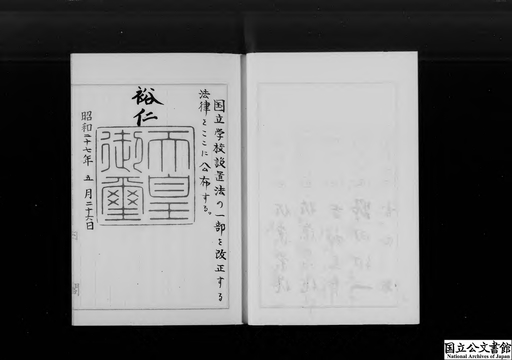 国立学校設置法の一部を改正する
法律をここに公布する。
裕仁
天皇
御璽
昭和三十七年 五月二十六日
国立公文書館
National Archives of Japan